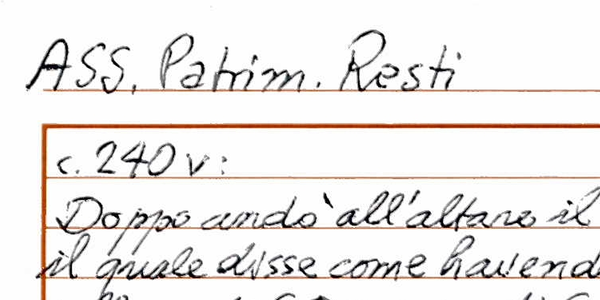 ASS. Patrim. Resti
c. 240 v:
Doppo andò all'altare il
il quale disse come havend